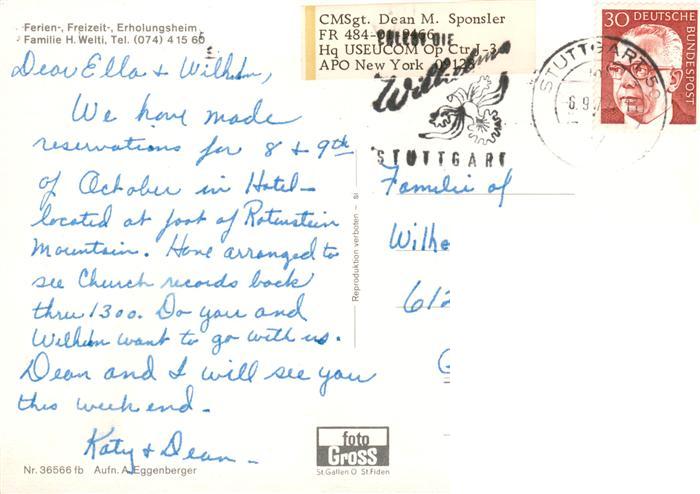 Ferien-, Freizeit-, Erholungsheim
Familie H. Welti, Tel. (074) 415 60
CMSgt. Dean M. Sponsler
FR 484-01-9466
Hq USEUCOM Op Ctr J-3
APO New York 09128
30 DEUTSCHE BUNDESPOST
DIE
Wilhelma
STUTTGART
STUTTGART
6.9.
Dear Ella & Wilhelm,
We have made
reservations for 8 & 9th
of October in Hotel -
located at foot of Rotenstein
Mountain. Have arranged to
see Church records back
thru 1300. Do you and
Wilhelm want to go with us.
Dean and I will see you
this weekend.
Katy & Dean -
Familie of
Wilhe
612
Reproduktion verboten - si
foto
GROSS
St.Gallen O St.Fiden
Nr. 36566 fb Aufn. A. Eggenberger